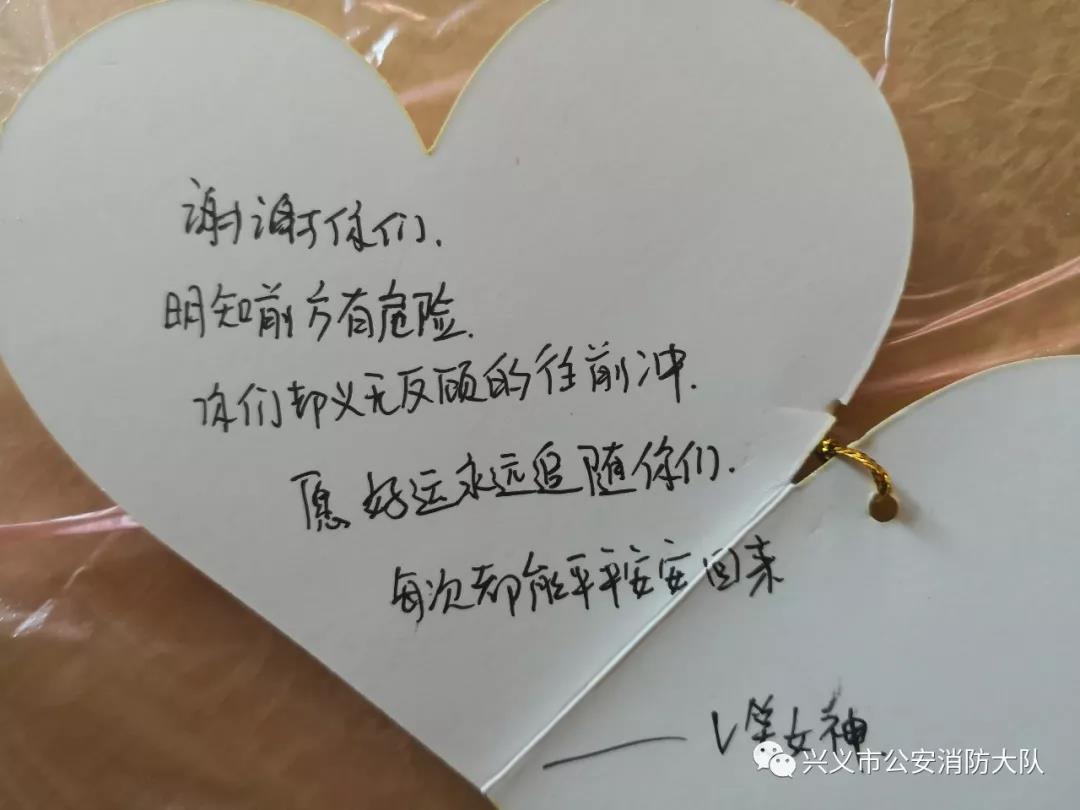 谢谢你们.
明知前方有危险.
你们却义无反顾的往前冲.
愿好运永远追随你们.
每次都能平平安安回来
女神
兴义市公安消防大队